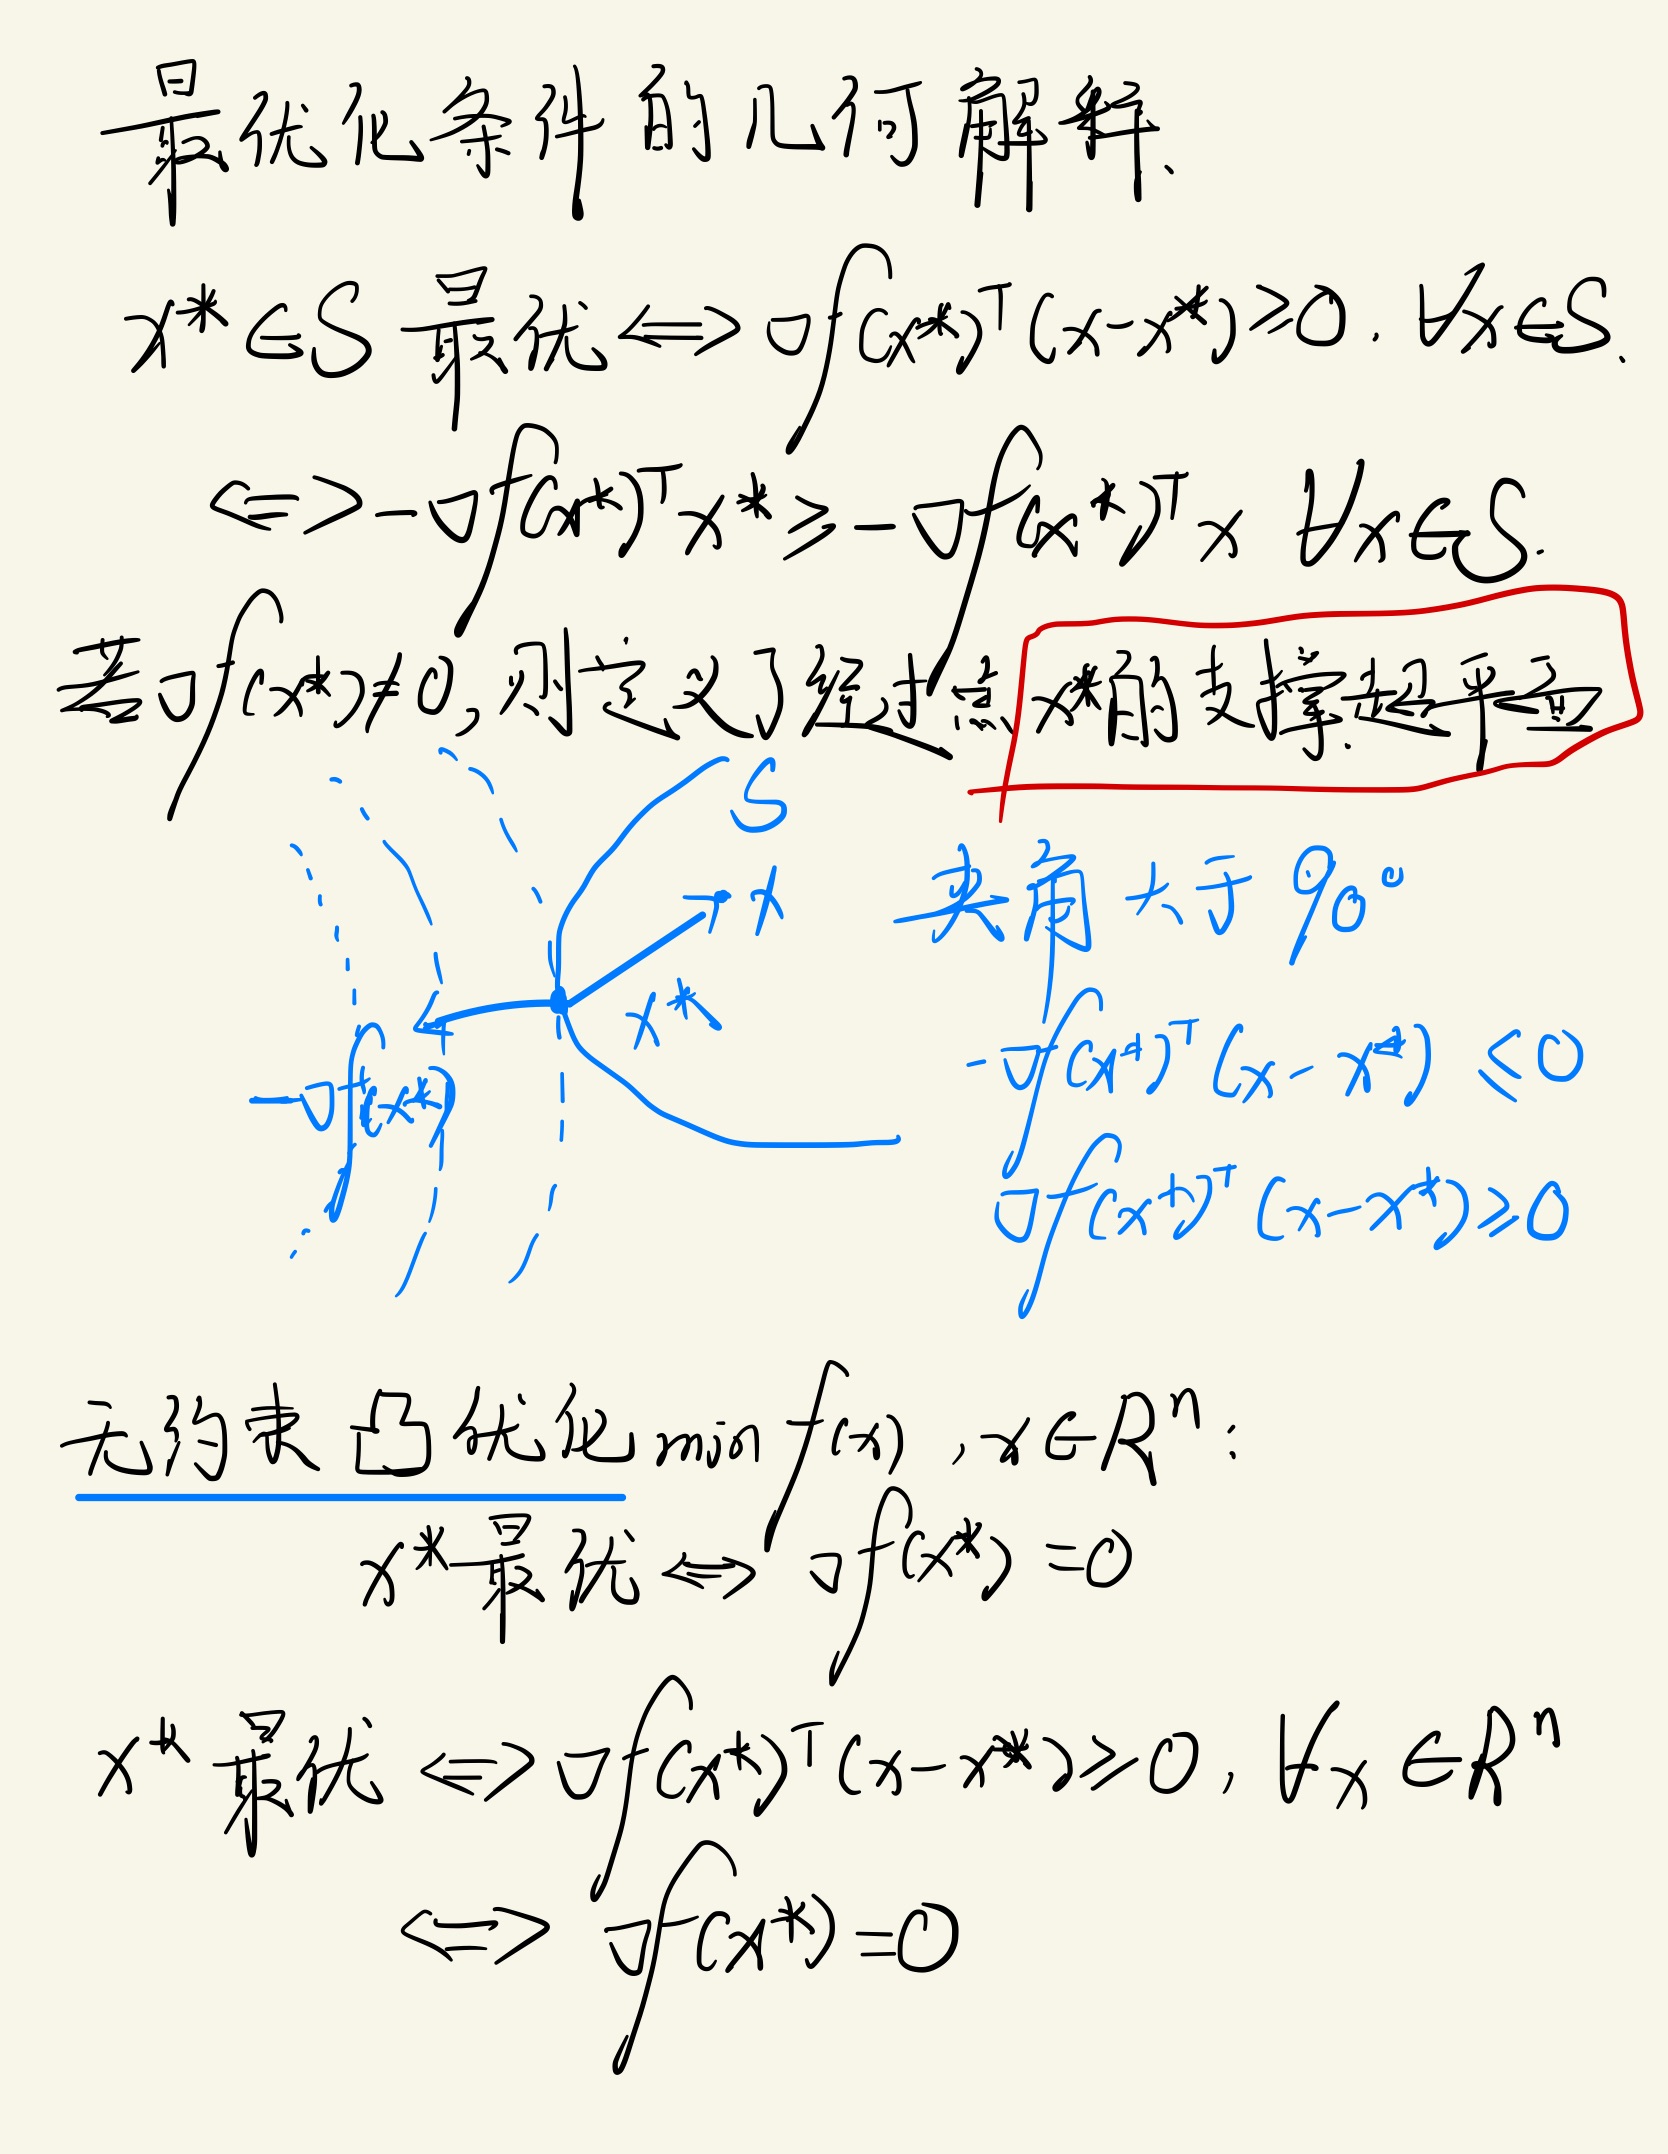 最优化条件的几何解释.
x*∈S 最优 ⟺ ∇f(x*)ᵀ(x-x*)≥0, ∀x∈S.
⟺ -∇f(x*)ᵀx* ≥ -∇f(x*)ᵀx ∀x∈S.
若∇f(x*)≠0, 则定义了经过点x*的支撑超平面
S
x
夹角大于90°
x*
-∇f(x*)ᵀ(x-x*) ≤0
-∇f(x*)
∇f(x*)ᵀ(x-x*)≥0
无约束凸优化 min f(x), x∈Rⁿ:
x*最优 ⟺ ∇f(x*)=0
x*最优 ⟺ ∇f(x*)ᵀ(x-x*)≥0, ∀x∈Rⁿ
⟺ ∇f(x*)=0